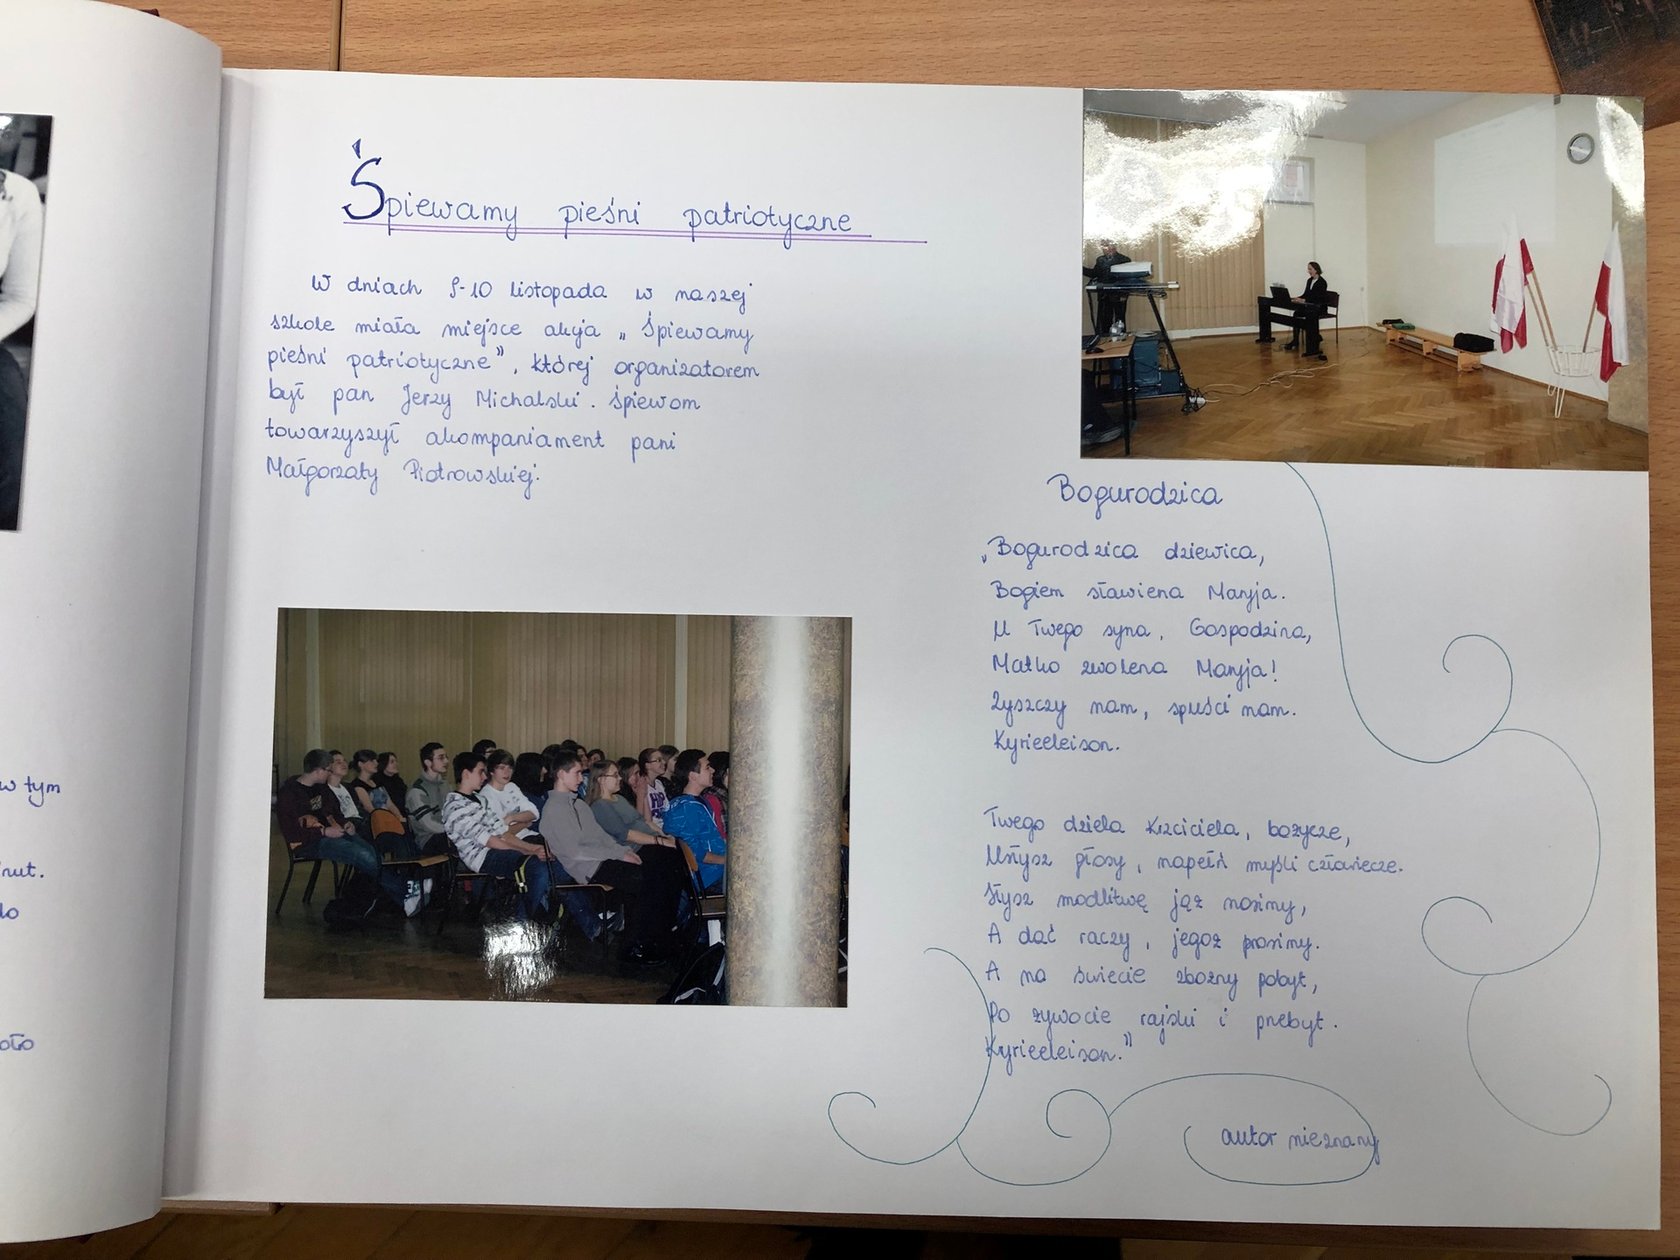 w tym
nut.
do
oło
Śpiewamy pieśni patriotyczne
W dniach 9-10 listopada w naszej
szkole miała miejsce akcja „Śpiewamy
pieśni patriotyczne”, której organizatorem
był pan Jerzy Michalski. Śpiewom
towarzyszył akompaniament pani
Małgorzaty Piotrowskiej.
Bogurodzica
„Bogurodzica dziewica,
Bogiem sławiena Maryja.
U Twego syna, Gospodzina,
Matko zwolena Maryja!
Zyszczy nam, spuści nam.
Kyrieeleison.
Twego dziela Krzciciela, bożycze,
Usłysz głosy, napełń myśli człowiecze.
Słysz modlitwę jąż nosimy,
A dać raczy, jegoż prosimy.
A na świecie zbożny pobyt,
Po żywocie rajski i przebyt.
Kyrieeleison.”
autor nieznany